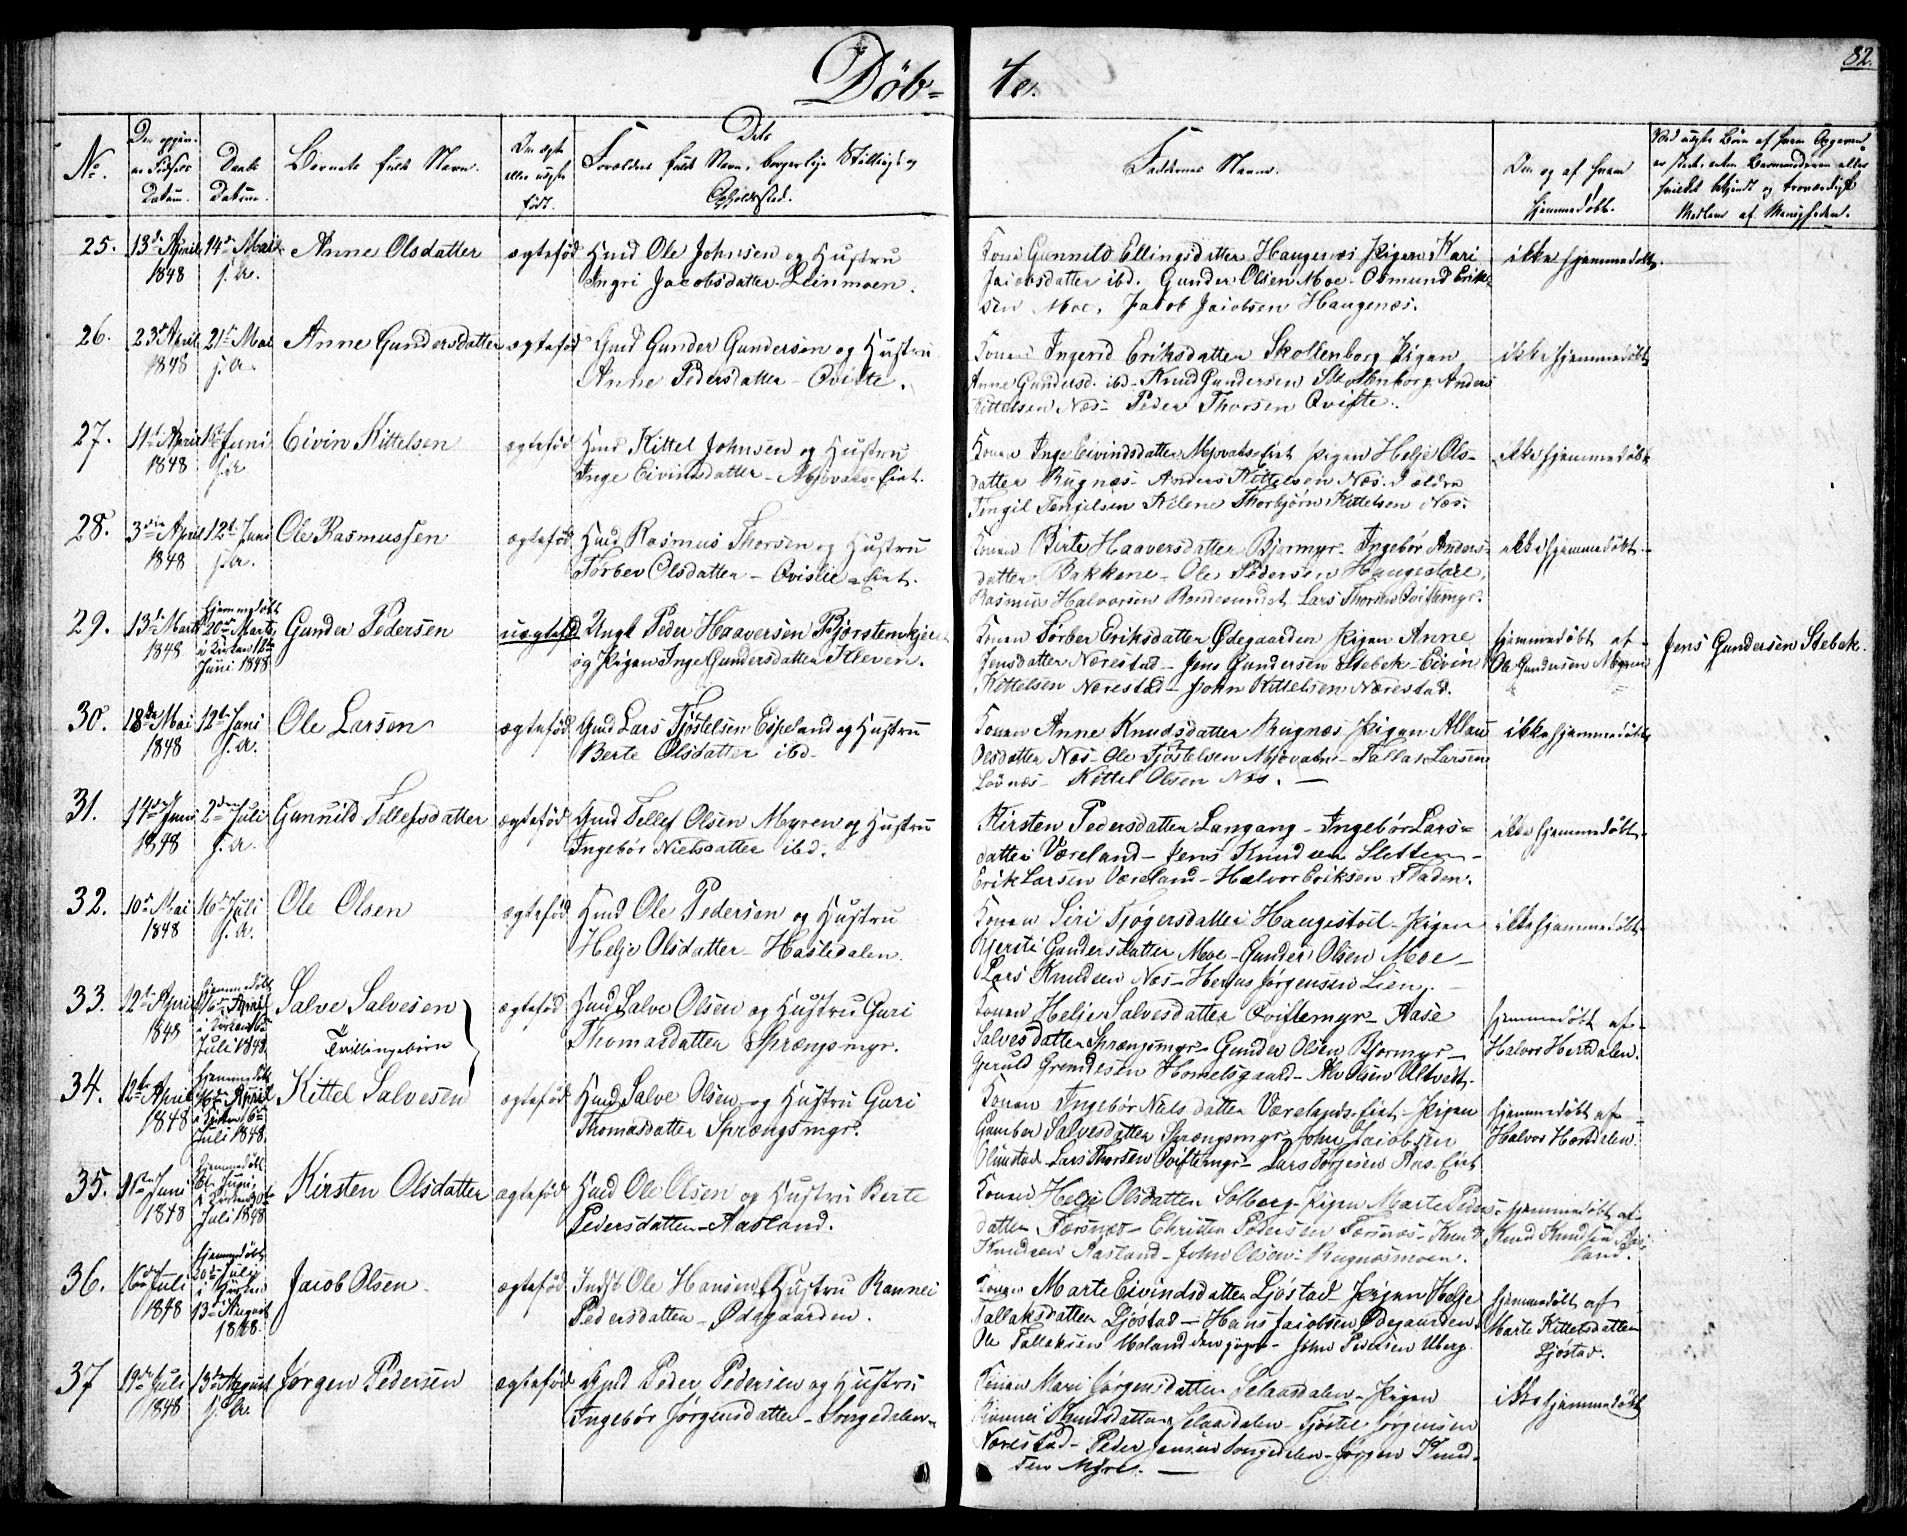 Døb-
te.
82.
No.
Daabs Datum.
Barnets fulde Navn.
Faddernes Navne.
25. 13de April 1848 14de Mai s. A. Anne Olsdatter ægtefød Gmd Ole Johnsen og Hustru
Ingri Jacobsdatter Leinmoen.
Konen Gunnild Ellingsdatter Haugenæs Pigen Kari
Jacobsdatter ibd. Gunder Olsen Moe - Osmund Erik-
sen Moe. Jacob Jacobsen Haugenæs.
ikke hjemmedøbt.
26. 23de April 1848 21de Mai s. A. Anne Gundersdatter ægtefød Gmd Gunder Gundersen og Hustru
Anne Pedersdatter - Qvifte.
Konen Ingerid Eriksdatter Skollenborg Pigen
Anne Gundersd. ibd - Knud Gundersen Skollenborg Anders
Kittelsen Næs - Peder Thorsen Qvifte.
ikke hjemmedøbt
27. 11te April 1848 1ste Juni s. A. Eivin Kittelsen ægtefød Gmd Kittel Johnsen og Hustru
Inge Eivindsdatter - Mjovats-Eiet.
Konen Inge Eivindsdatter Mjovats-Eiet Pigen Helje Ols-
datter Rugnæs - Anders Kittelsen Næs.
Thorbjørn Kittelsen Næs.
ikke hjemmedøbt
28. 3die April 1848 12te Juni s. A. Ole Rasmussen ægtefød Gmd Rasmus Thorsen og Hustru
Torber Olsdatter - Qvifte-Eiet.
Konen Birte Haaversdatter Bjormyr - Ingebør Anders-
datter Bakkene - Ole Pedersen Haugestøel,
Rasmus Halvorsen Rondesundet - Lars Thorsen Qviftemyr.
ikke hjemmedøbt
29. 13de Marts 1848 hjemmedøbt 20de Marts i Kirken 12te Juni 1848 Gunder Pedersen uægtefød Ungk Peder Haaversen
og Pigen Inge Gundersdatter Kleven.
Konen Torber Eriksdatter Ødegaarden Pigen Anne
Jensdatter Nærestad - Jens Gundersen Stebek - Eivin
Kittelsen Nærestad - John Kittelsen Nærestad.
hjemmedøbt af
Ole Gundersen Myren
Jens Gundersen Stebek.
30. 18de Mai 1848 12te Juni s. A. Ole Larsen ægtefød Gmd Lars Tjøstelsen Espeland og Hustru
Berte Olsdatter ibd.
Konen Anne Knudsdatter Rugnæs Pigen
Olsdatter Næs - Ole Tjøstelsen Mjovatn - Tallak Larsen
Løvnæs - Kittel Olsen Næs. -
ikke hjemmedøbt
31. 14de Juni 1848 2den Juli s. A. Gunnild Tellefsdatter ægtefød Gmd Tellef Olsen Myren og Hustru
Ingebør Nielsdatter ibd.
Kirsten Pedersdatter Langang - Ingebør Lars-
datter Væreland - Jens Knudsen Sletten -
Erik Larsen Væreland - Halvor Eriksen Fladen.
ikke hjemmedøbt
32. 10de Mai 1848 16de Juli s. A. Ole Olsen ægtefød Gmd Ole Pedersen og Hustru
Helje Olsdatter - Hastedalen.
Konen Siri Tjøgersdatter Haugestøel - Pigen
Kjersti Gundersdatter Moe - Gunder Olsen Moe -
Lars Knudsen Næs - Jørgensen Lien. -
ikke hjemmedøbt
33. 12te April 1848 hjemmedøbt 16de April i Kirken 16de Juli 1848 Salve Salvesen
Tvillingebørn
ægtefød Gmd Salve Olsen og Hustru Guri
Thomasdatter Sprængsmyr.
Konen Helje Salvesdatter Qviftemyr - Aase
Salvesdatter Sprængsmyr - Gunder Olsen Bjormyr -
Hommelsgaard - Alv Olsen Ulltvett.
hjemmedøbt af
Halvor Hertdalen.
34. 12te April 1848 hjemmedøbt 16de April i Kirken 16de Juli 1848 Kittel Salvesen ægtefød Gmd Salve Olsen og Hustru Guri
Thomasdatter Sprængsmyr.
Konen Ingebør Nielsdatter Værelands-Eiet - Pigen
Gunbor Salvesdatter Sprængsmyr - John Jacobsen
Olimstad - Lars Thorsen Qviftemyr - Lars Torjesen Aas-Eiet
hjemmedøbt af
Halvor Hertdalen.
35. Juni 1848 hjemmedøbt i Kirken Juli 1848 Kirsten Olsdatter ægtefød Gmd Ole Olsen og Hustru Berte
Pedersdatter - Aasland.
Konen Helje Olsdatter Solberg - Pigen Marte Peders-
datter Færsnæs - Christen Pedersen Færsnæs - Knud
Knudsen Aasland - John Olsen Rugnæsmoen.
hjemmedøbt af
Knud Knudsen Aas-
land.
36. 16de Juli 1848 hjemmedøbt 20de Juli i Kirken 13de August 1848. Jacob Olsen. ægtefød Indst Ole Hansen & Hustru Rannei
Pedersdatter - Ødegaarden.
Konen Marte Eivindsdatter Ljøstad - Pigen Helje
Tallaksdatter Ljøstad - Hans Jacobsen Ødegaarden
Ole Tallaksen Moland den yngre - John Pedersen Uberg.
hjemmedøbt af
Marte Kittelsdatter
Ljøstad.
37 19de Juli 1848 13de August s. A. Jørgen Pedersen ægtefød Gmd Peder Pedersen og Hustru
Ingebør Jørgensdatter - Songedalen -
Konen Mari Jørgensdatter Selaasdalen - Pigen
Knudsdatter Selaasdalen - Tjøstel Jørgensen
Nærestad - Peder Jensen Songedalen - Jørgen Knud-
sen Myre. -
ikke hjemmedøbt